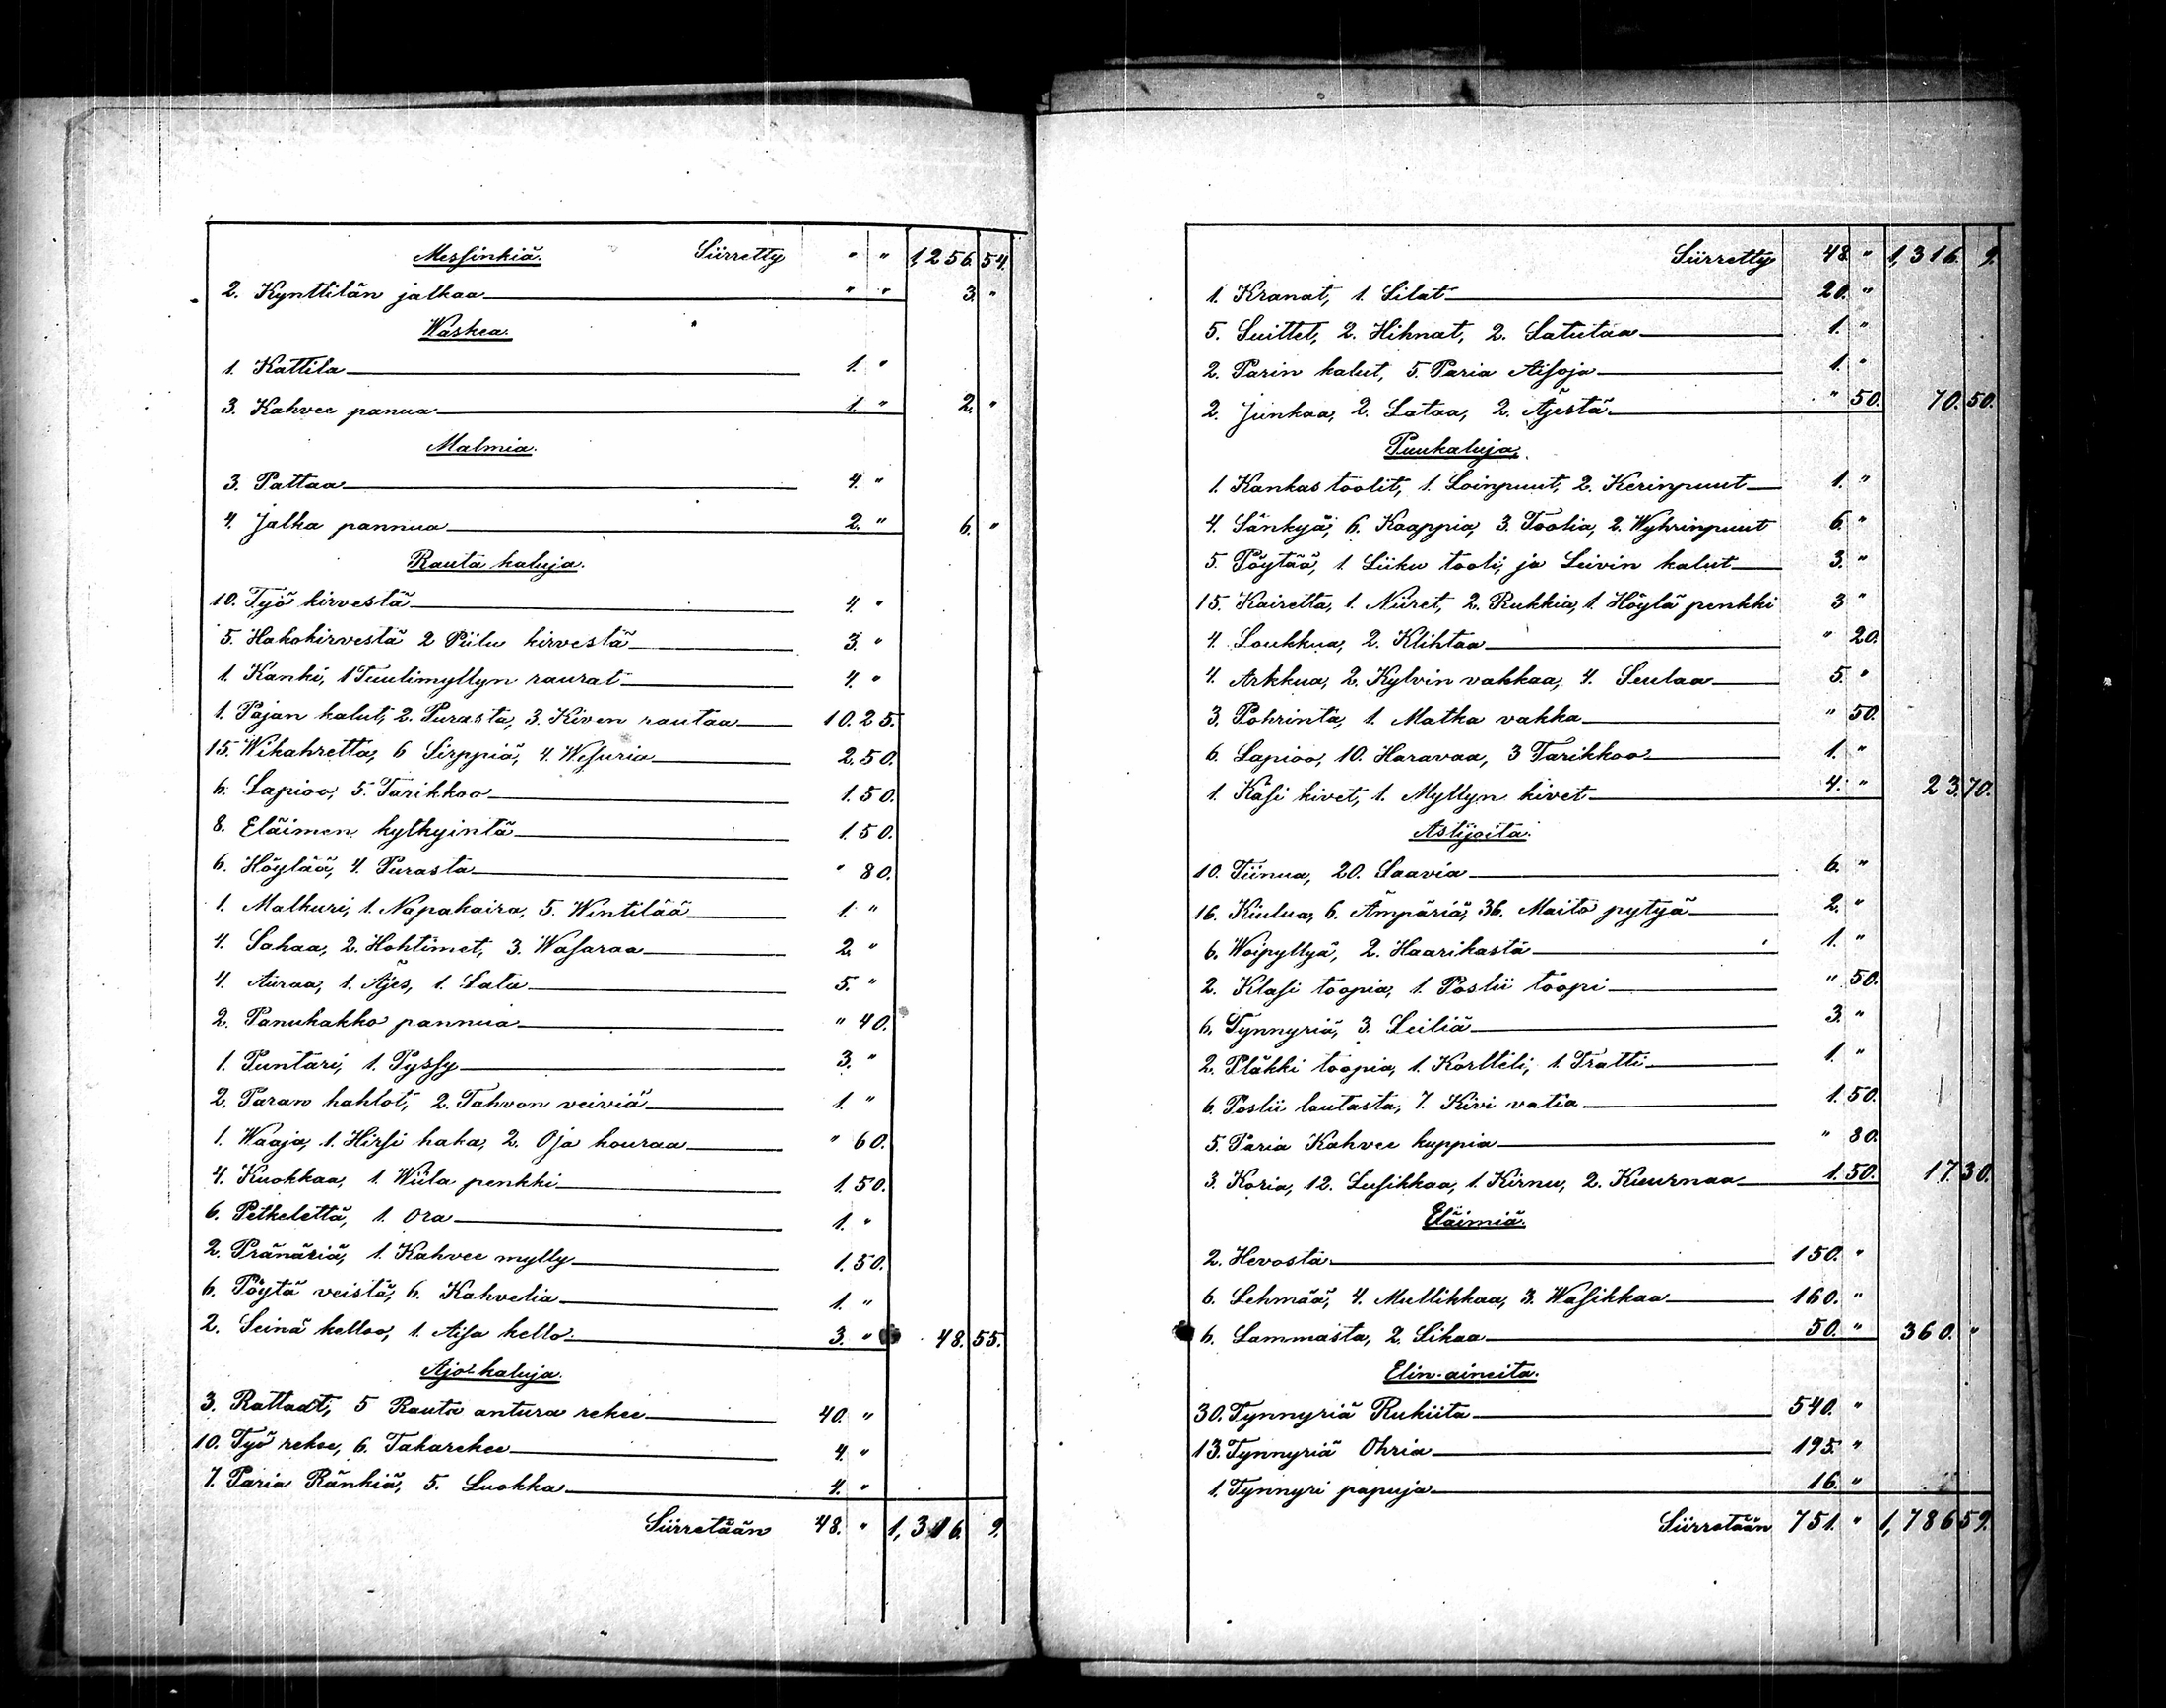 Messinkiä. Siirretty " " 1,256. 54.
2. Kynttilän jalkaa " " 3. "
Waskea.
1. Kattila 1. "
3. Kahvee panua 1. " 2. "
Malmia.
3. Pattaa 4. "
4. Jalka pannua 2. " 6. "
Rauta kaluja.
10. Työ kirvestä 4. "
5. Hakokirvestä 2 Piilu kirvestä 3. "
1. Kanki, 1 Tuulimyllyn raurat 4. "
1. Pajan kalut, 2. Purasta, 3. Kiven rautaa 10. 25.
15. Wikahretta, 6 Sirppiä, 4. Wesuria 2. 50.
6. Lapioo, 5. Tarikkoo 1. 50.
8. Eläimen kytkyintä 1. 50.
6. Höylää, 4. Purasta " 80.
1. Malkuri, 1. Napakaira, 5. Wintilää 1. "
4. Sahaa, 2. Hohtimet, 3. Wasaraa 2. "
4. Auraa, 1. Äjes, 1. Lata 5. "
2. Panukakko pannua " 40.
1. Puntari, 1. Pyssy 3. "
2. Taran kahlot, 2. Tahvon veiviä 1. "
1. Waaja, 1. Hirsi haka, 2. Oja kouraa " 60.
4. Kuokkaa, 1. Wiila penkki 1. 50.
6. Petkelettä, 1. Ora 1. "
2. Pränäriä, 1. Kahvee mylly 1. 50.
6. Pöytä veistä, 6. Kahvelia 1. "
2. Seinä kelloo, 1. Aisa kello 3. " 48. 55.
Ajo kaluja.
3. Rattaat, 5 Rauta antura rekee 40. "
10. Työ rekee, 6. Takarekee 4. "
7. Paria Ränkiä, 5. Luokka 4. "
Siirretään 48. " 1,316. 9.
Siirretty 48. " 1,316. 9.
1. Kranat, 1. Silat 20. "
5. Suittet, 2. Hihnat, 2. Satutaa 1. "
2. Parin kalut, 5. Paria Aisoja 1. "
2. Junkaa, 2. Lataa, 2. Äjestä " 50. 70. 50.
Puukaluja.
1. Kankas toolit, 1. Loinpuut, 2. Kerinpuut 1. "
4. Sänkyä, 6. Kaappia, 3. Toolia, 2. Wyhrinpuut 6. "
5. Pöytää, 1 Liiku tooli, ja Leivin kalut 3. "
15. Kairetta, 1. Niiret, 2. Rukkia, 1. Höylä penkki 3 "
4. Loukkua, 2. Klihtaa " 20.
4. Arkkua, 2. Kylvin vakkaa, 4. Seulaa 5. "
3. Pohrinta, 1. Matka vakka " 50.
6. Lapioo, 10. Haravaa, 3 Tarikkoo 1. "
1. Käsi kivet, 1. Myllyn kivet 4. " 23. 70.
Astijoita.
10. Tiinua, 20. Saavia 6. "
16. Kiulua, 6. Ämpäriä, 36. Maito pytyä 2. "
6. Woipyttyä, 2. Haarikasta 1. "
2. Klasi tööpia, 1. Poslii tööpi " 50.
6. Tynnyriä, 3. Leiliä 3. "
2. Pläkki tööpia, 1. Kortteli, 1. Tratti 1. "
6. Poslii lautasta, 7. Kivi vatia 1. 50.
5. Paria Kahvee kuppia " 80.
3. Koria, 12. Lusikkaa, 1. Kirnu, 2. Kuurnaa 1. 50. 17. 30.
Eläimiä.
2. Hevosta 150. "
6. Lehmää, 4. Mullikkaa, 3. Wasikkaa 160. "
6. Lammasta, 2. Sikaa 50. " 360. "
Elin-aineita.
30. Tynnyriä Rukiita 540. "
13. Tynnyriä Ohria 195. "
1. Tynnyri papuja 16. "
Siirretään 751. " 1,786 59.